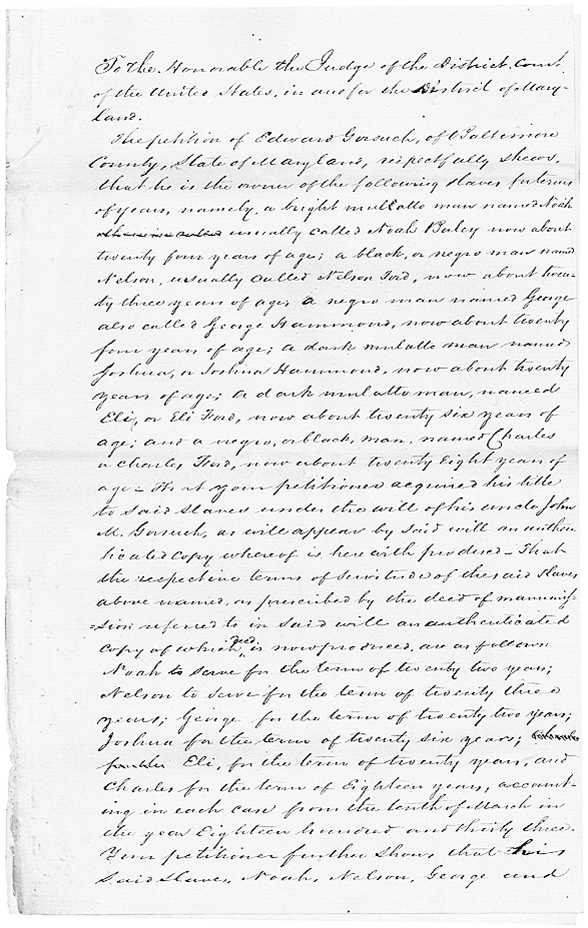 To the Honorable the Judge of the District Court
of the United States, in and for the District of Mary-
land.
The petition of Edward Gorsuch, of Baltimore
County, State of Maryland, respectfully shews,
that he is the owner of the following slaves for terms
of years, namely, a bright mulatto man named Noah
usually called Noah Buley now about
twenty four years of age; a black, or negro man named
Nelson, usually called Nelson Ford, now about twen-
ty three years of age, a negro man named George
also called George Hammond, now about twenty
four years of age; a dark mulatto man named
Joshua, or Joshua Hammond, now about twenty
years of age; a dark mulatto man, named
Eli, or Eli Ford, now about twenty six years of
age; and a negro, or black, man, named Charles
or Charles Ford, now about twenty Eight years of
age – That your petitioner acquired his title
to said slaves under the will of his uncle John
M. Gorsuch, as will appear by said will an authen
ticated copy whereof is here with produced – That
the respective terms of servitude of the said slaves
above named, as prescribed by the deed of manumis-
=sion referred to in said will an authenticated
copy of which deed is now produced, are as follows:
Noah to serve for the term of twenty two years;
Nelson to serve for the term of twenty three
years; George for the term of twenty two years;
Joshua for the term of twenty six years;
Eli, for the term of twenty years, and
Charles for the term of Eighteen years, account-
ing in each case from the tenth of March in
the year Eighteen hundred and thirty three.
Your petitioner further shows that his
said slaves, Noah, Nelson, George and